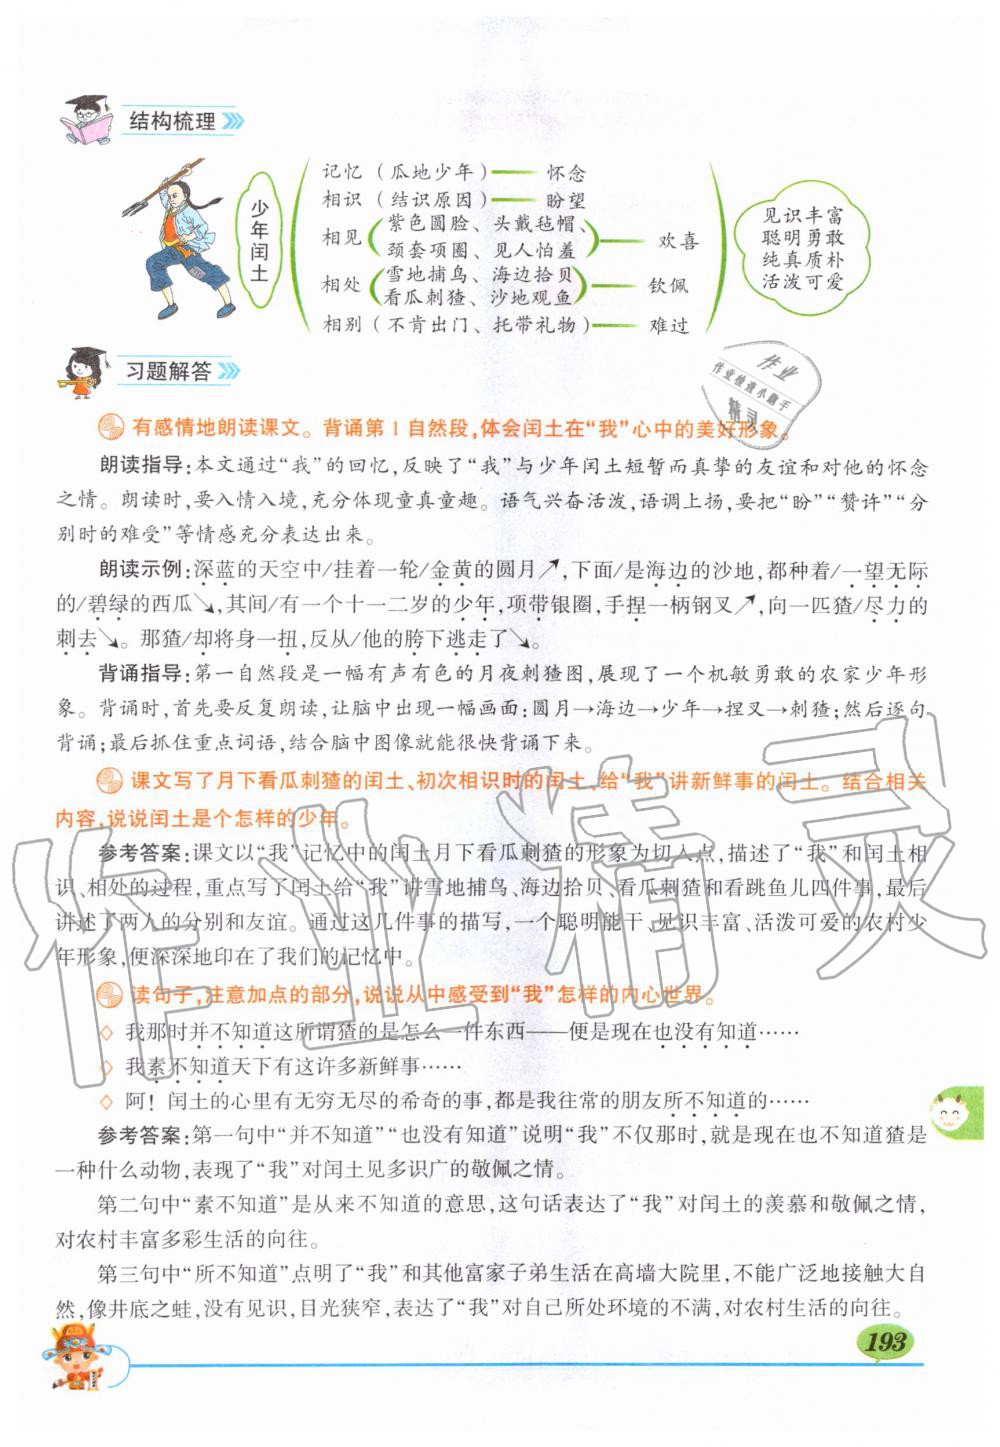 结构梳理
少年闰土
记忆（瓜地少年）——怀念
相识（结识原因）——盼望
相见
紫色圆脸、头戴毡帽、
颈套项圈、见人怕羞
欢喜
相处
雪地捕鸟、海边拾贝
看瓜刺猹、沙地观鱼
钦佩
相别（不肯出门、托带礼物）——难过
见识丰富
聪明勇敢
纯真质朴
活泼可爱
习题解答
作业
作业检查小助手
精灵
有感情地朗读课文。背诵第1自然段,体会闰土在“我”心中的美好形象。
朗读指导:本文通过“我”的回忆,反映了“我”与少年闰土短暂而真挚的友谊和对他的怀念
之情。朗读时,要入情入境,充分体现童真童趣。语气兴奋活泼,语调上扬,要把“盼”“赞许”“分
别时的难受”等情感充分表达出来。
朗读示例:深蓝的天空中/挂着一轮/金黄的圆月↗,下面/是海边的沙地,都种着/一望无际
的/碧绿的西瓜↘,其间/有一个十一二岁的少年,项带银圈,手捏一柄钢叉↗,向一匹猹/尽力的
刺去↘。那猹/却将身一扭,反从/他的胯下逃走了↘。
背诵指导:第一自然段是一幅有声有色的月夜刺猹图,展现了一个机敏勇敢的农家少年形
象。背诵时,首先要反复朗读,让脑中出现一幅画面:圆月→海边→少年→捏叉→刺猹;然后逐句
背诵;最后抓住重点词语,结合脑中图像就能很快背诵下来。
课文写了月下看瓜刺猹的闰土、初次相识时的闰土、给“我”讲新鲜事的闰土。结合相关
内容,说说闰土是个怎样的少年。
参考答案:课文以“我”记忆中的闰土月下看瓜刺猹的形象为切入点,描述了“我”和闰土相
识、相处的过程,重点写了闰土给“我”讲雪地捕鸟、海边拾贝、看瓜刺猹和看跳鱼儿四件事,最后
讲述了两人的分别和友谊。通过这几件事的描写,一个聪明能干、见识丰富、活泼可爱的农村少
年形象,便深深地印在了我们的记忆中。
读句子,注意加点的部分,说说从中感受到“我”怎样的内心世界。
◇ 我那时并不知道这所谓猹的是怎么一件东西——便是现在也没有知道……
◇ 我素不知道天下有这许多新鲜事……
◇ 阿！闰土的心里有无穷无尽的希奇的事,都是我往常的朋友所不知道的……
参考答案:第一句中“并不知道”“也没有知道”说明“我”不仅那时,就是现在也不知道猹是
一种什么动物,表现了“我”对闰土见多识广的敬佩之情。
第二句中“素不知道”是从来不知道的意思,这句话表达了“我”对闰土的羡慕和敬佩之情,
对农村丰富多彩生活的向往。
第三句中“所不知道”点明了“我”和其他富家子弟生活在高墙大院里,不能广泛地接触大自
然,像井底之蛙,没有见识,目光狭窄,表达了“我”对自己所处环境的不满,对农村生活的向往。
作业精灵
193